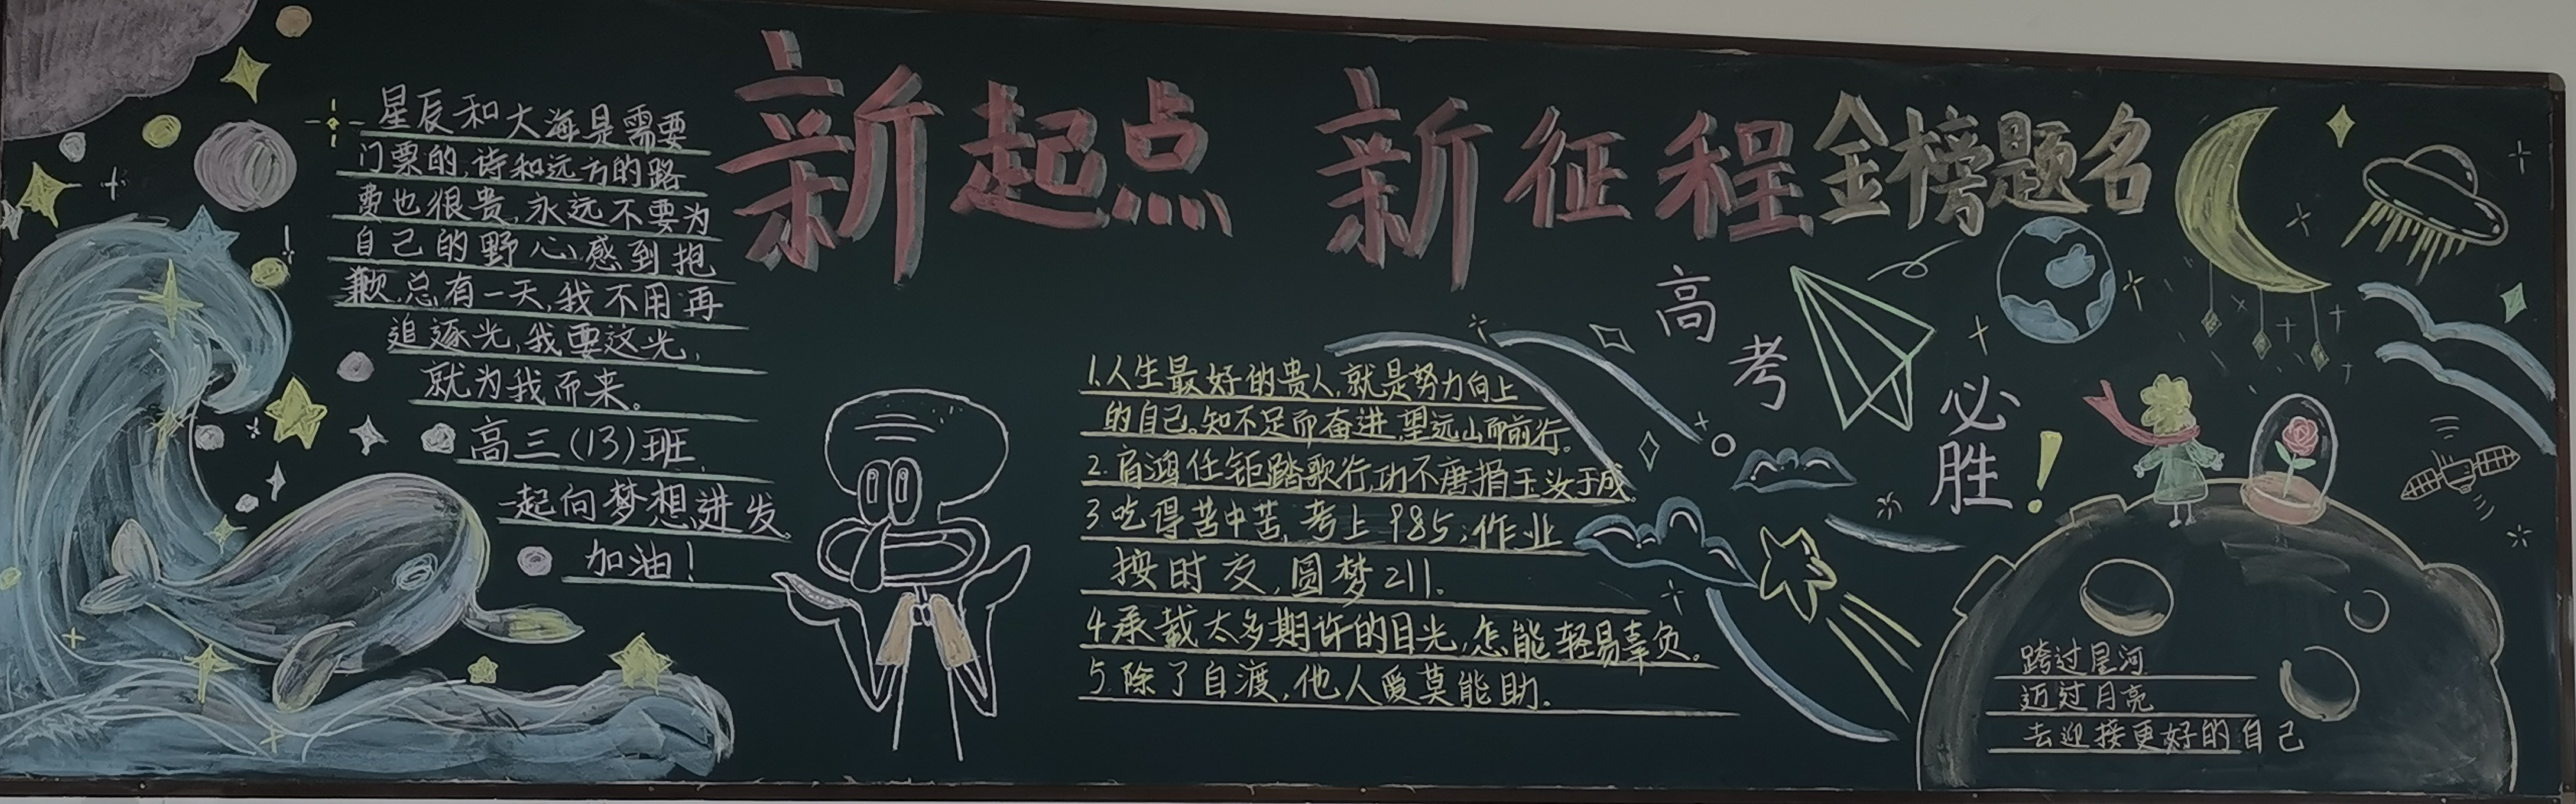 新起点 新征程 金榜题名
星辰和大海是需要
门票的,诗和远方的路
费也很贵,永远不要为
自己的野心感到抱
歉,总有一天,我不用再
追逐光,我要这光,
就为我而来。
高三(13)班
一起向梦想进发。
加油!
1.人生最好的贵人,就是努力向上
的自己。知不足而奋进,望远山而前行。
2.肩鸿任钜踏歌行,功不唐捐玉汝于成。
3吃得苦中苦,考上985;作业
按时交,圆梦211.
4.承载太多期许的目光,怎能轻易辜负。
5.除了自渡,他人爱莫能助.
高考
必胜!
跨过星河
迈过月亮
去迎接更好的自己